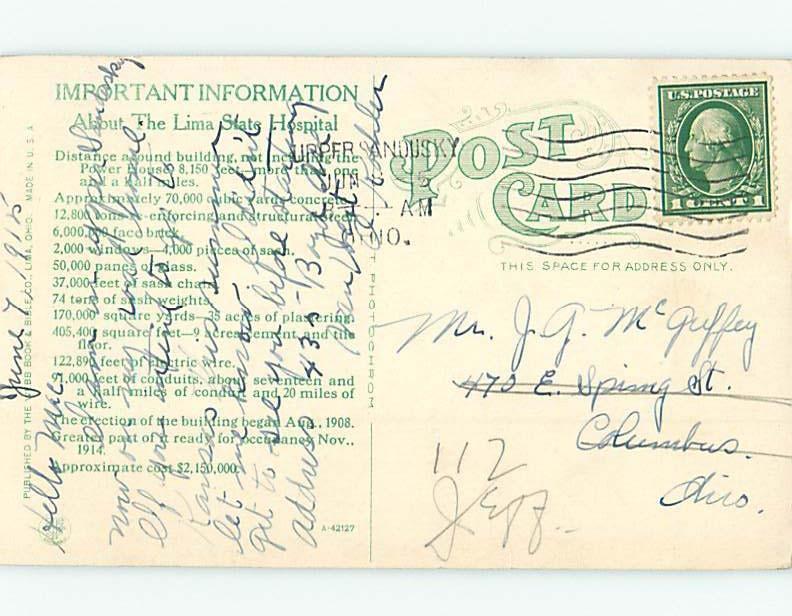 IMPORTANT INFORMATION
About The Lima State Hospital
Distance around building, not including the
Power House 8,150 feet, more than one
and a half miles.
Approximately 70,000 cubic yards concrete.
12,800 tons re-enforcing and structural steel.
6,000,000 face brick.
2,000 windows—4,000 pieces of sash.
50,000 panes of glass.
37,000 feet of sash chain.
74 tons of sash weights.
170,000 square yards—35 acres of plastering.
405,400 square feet—9 acres cement and tile
floor.
122,890 feet of electric wire.
91,000 feet of conduits, about seventeen and
a half miles of conduit and 20 miles of
wire.
The erection of the building began Aug., 1908.
Greater part of it ready for occupancy Nov.,
1914.
Approximate cost $2,150,000.
A-42127
PUBLISHED BY THE WEBB BOOK & BIBLE CO., LIMA, OHIO. MADE IN U.S.A
June 7, 1915
Hello Mc
now on my
If you
Kansas this summer
let me know
get to see you before starting
address 433
UPPER SANDUSKY
AM
POST CARD
U.S. POSTAGE
1 CENT 1
THIS SPACE FOR ADDRESS ONLY.
Mr. J. G. McGuffey
475 E. Spring St.
Columbus.
Ohio.
112
Jeff.